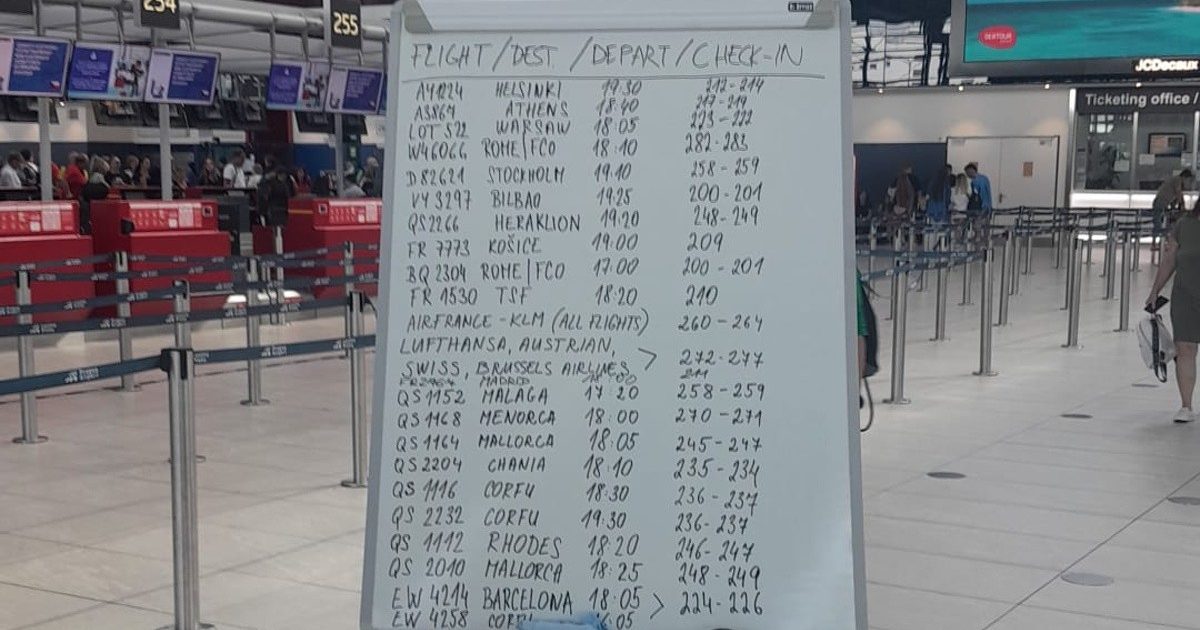 254
255
DERTOUR
JCDecaux
Ticketing office /
FLIGHT/DEST./DEPART/CHECK-IN
AY1224 HELSINKI 19:30 212-214
A3864 ATHENS 18:40 217-219
LOT 522 WARSAW 18:05 223-222
W46066 ROME/FCO 18:10 282-283
D82621 STOCKHOLM 19:10 258-259
VY3297 BILBAO 19:25 200-201
QS2266 HERAKLION 19:20 248-249
FR 7773 KOŠICE 19:00 209
BQ 2304 ROME/FCO 17:00 200-201
FR 1530 TSF 18:20 210
AIRFRANCE-KLM (ALL FLIGHTS) 260-264
LUFTHANSA, AUSTRIAN,
SWISS, BRUSSELS AIRLINES > 272-277
MADRID 18:00 211
QS1152 MALAGA 17:20 258-259
QS1168 MENORCA 18:00 270-271
QS 1164 MALLORCA 18:05 245-247
QS2204 CHANIA 18:10 235-234
QS 1116 CORFU 18:30 236-237
QS 2232 CORFU 19:30 236-237
QS 1112 RHODES 18:20 246-247
QS 2010 MALLORCA 18:25 248-249
EW 4214 BARCELONA 18:05 > 224-226
EW 4258 CORFU